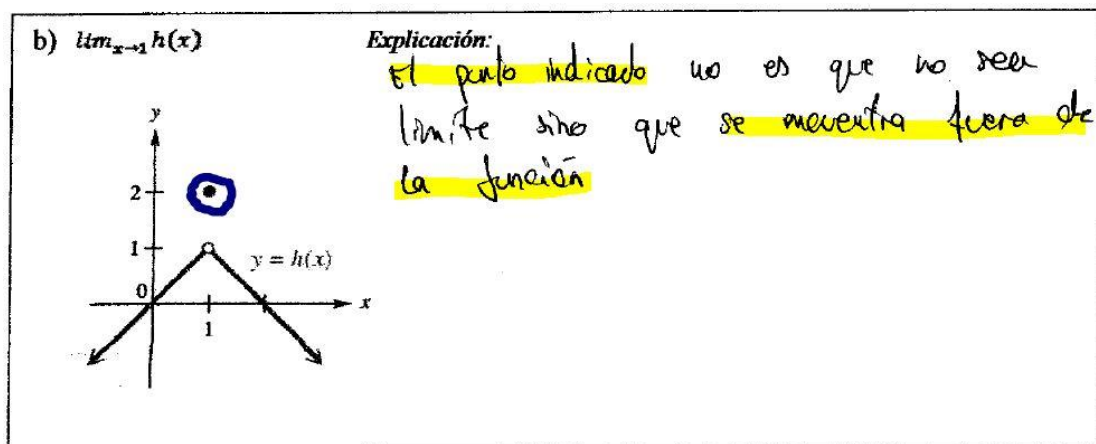 b) lim_{x→1} h(x)
Explicación:
El punto indicado no es que no sea
limite sino que se encuentra fuera de
la función
y
2
1
y = h(x)
0
x
1